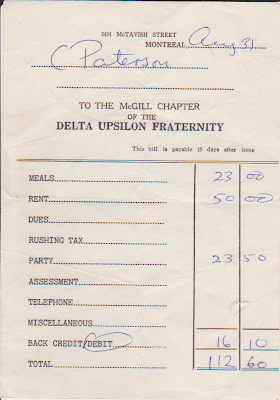 3434 McTAVISH STREET
MONTREAL, Aug 31
C Paterson
TO THE McGILL CHAPTER
OF THE
DELTA UPSILON FRATERNITY
This bill is payable 10 days after issue
MEALS 23 00
RENT 50 00
DUES
RUSHING TAX
PARTY 23 50
ASSESSMENT
TELEPHONE
MISCELLANEOUS
BACK CREDIT/DEBIT 16 10
TOTAL 112 60